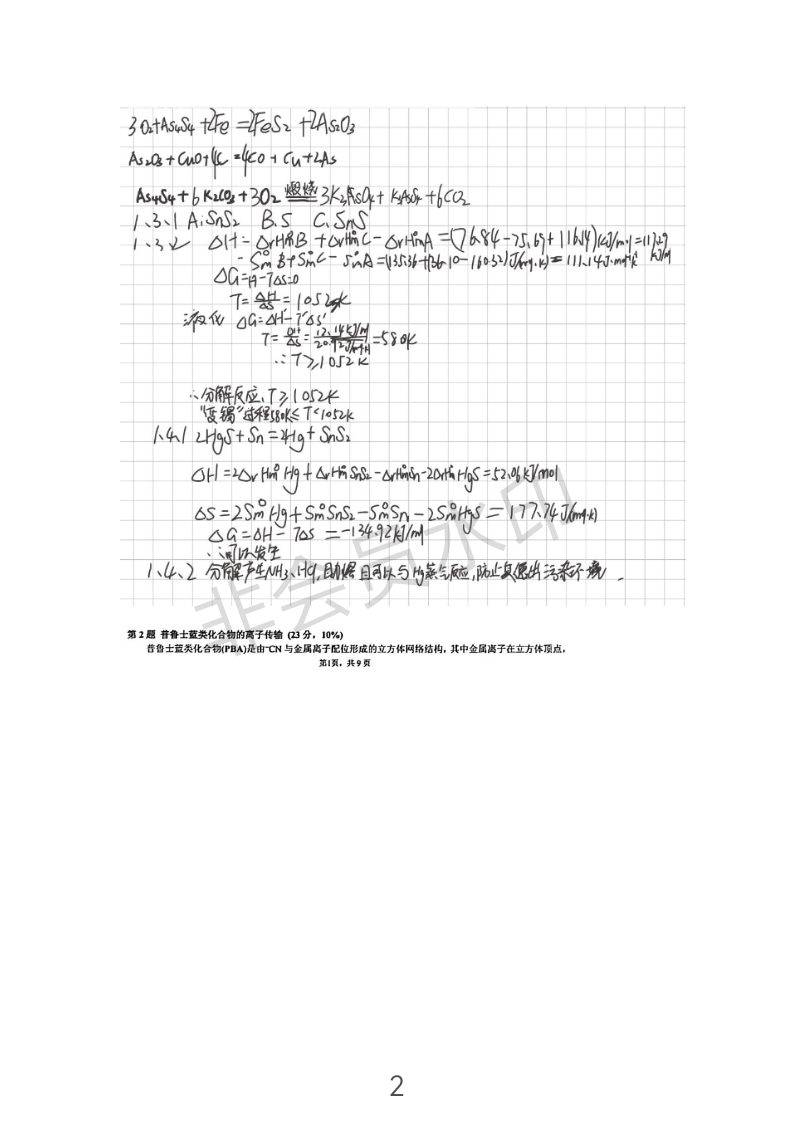 3O₂+As₄S₄+2Fe=2FeS₂+2As₂O₃
As₂O₃+CuO+4C=4CO+Cu+2As
As₄S₄+6K₂CO₃+3O₂ 煅烧 3K₃AsO₄+K₃AsS₄+6CO₂
1.3.1 A.SnS₂ B.S C.SnS
1.3.2 ΔH=ΔrHm°B+ΔrHm°C-ΔrHm°A=(76.84-75.69+116.14)kJ/mol=117.29 kJ/M
Sm°B+Sm°C-Sm°A= J/(mol·K)=111.14J·mol⁻¹K⁻¹
ΔG=H-TΔS=0
T=ΔH/ΔS=1052K
液化 ΔG=ΔH'-T'ΔS'
T=ΔH/ΔS=12.14kJ/M/20.92J/(mol·K)=580K
∴T≥1052K
∴分解反应,T≥1052K
"变锡"过程580K≤T<1052K
1.4.1 2HgS+Sn=2Hg+SnS₂
ΔH=2ΔrHm°Hg+ΔrHm°SnS₂-ΔrHm°Sn-2ΔrHm°HgS=52.06kJ/mol
ΔS=2Sm°Hg+Sm°SnS₂-Sm°Sn-2Sm°HgS=177.74J/(mol·K)
ΔG=ΔH-TΔS=-134.92kJ/M
∴可以发生
1.4.2 分解产生NH₃、HCl,助熔且可以与Hg蒸气反应,防止其逸出污染环境.
非会员水印
第 2 题 普鲁士蓝类化合物的离子传输 (23 分，10%)
普鲁士蓝类化合物(PBA)是由⁻CN 与金属离子配位形成的立方体网络结构，其中金属离子在立方体顶点，
第1页，共 9 页
2